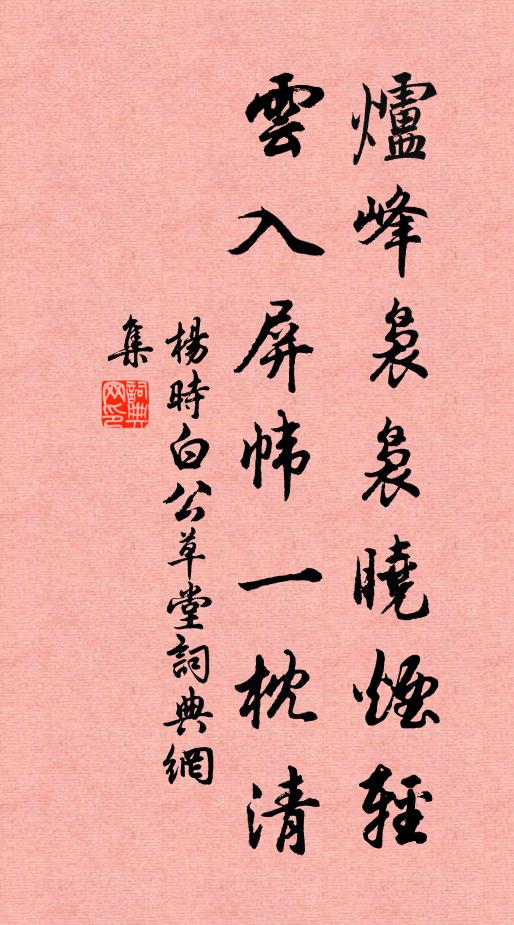 爐峰裊裊曉煙輕
雲入屏幃一枕清
楊時白公草堂詞典網
集
詞典網印